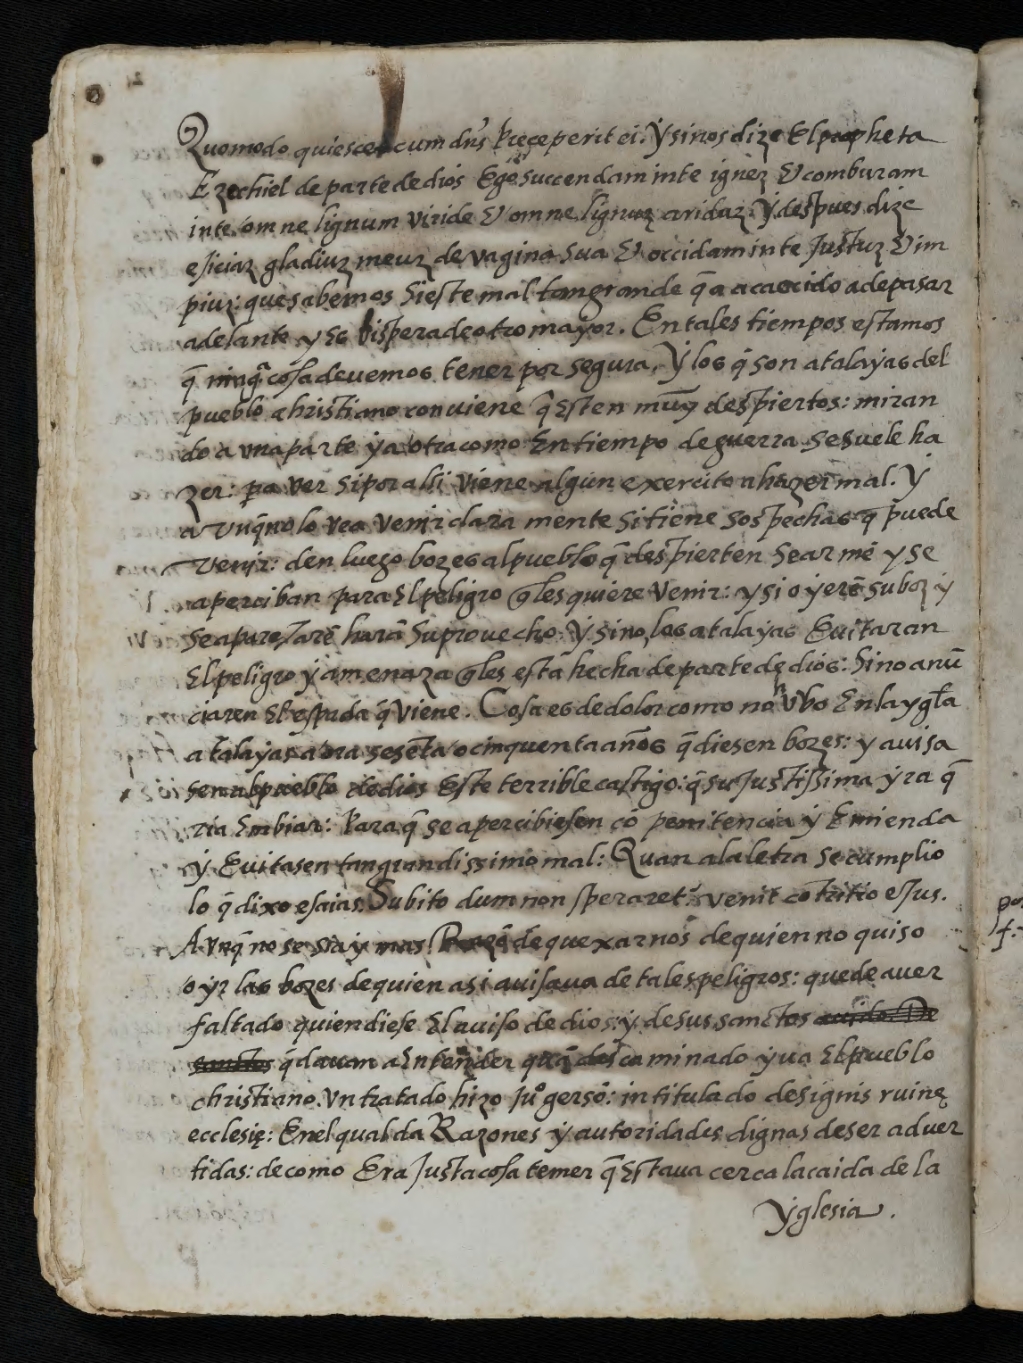 Quomodo quiescet cum dn̄s pręceperit ei. Y si nos dize El propheta
Ezechiel de parte de dios Ego succendam in te igneʒ & comburam
in te omne lignum viride & omne lignuʒ aridaʒ. Y despues dize
eiiciaʒ gladiuʒ meuʒ de vagina sua & occidam in te Justuʒ & im
piuʒ: que sabemos Si este mal tan grande q̄ a acaecido a de pasar
adelante y Es bispera de otro mayor. En tales tiempos estamos
q̄ ningᵃ cosa devemos tener por segura, Y los q̄ son atalayas del
pueblo christiano conviene q̄ Esten muy despiertos: miran
do a una parte y a otra como En tiempo de guerra se suele ha
zer: pa ver si por alli viene algun exercito a hazer mal. Y
a unq̄ no lo vea venir claramente si tiene sospechas q̄ puede
venir: den luego bozes al pueblo q̄ despierten Se armē y se
aperciban para El peligro q̄ les quiere venir: y si oyerē su boz y
se aparejarē harā su provecho. Y sino, los atalayas Evitaran
El peligro y amenaza q̄ les está hecha de parte de dios: Si no anū
ciaren El espada q̄ viene. Cosa es de dolor como no hubo En la ygl̄a
atalayas aora sesēta o cinquenta años q̄ diesen bozes: y avisa
sen al pueblo de dios Este terrible castigo: q̄ su justissima yra q̄
ria Embiar: Para q̄ se apercibiesen cō penitencia y Emienda
y Evitasen tan grandissimo mal: Quan a la letra se cumplio
lo q̄ dixo esaias. Subito dum non speraret² veniet cōtritio ejus.
Aunq̄ no se si ay mas de quexarnos de quien no quiso
oyr las bozes de quien asi avisava de tales peligros: que de aver
faltado quien diese El aviso de dios: y de sus sanctos
q̄ davan a Entender caminado yva El pueblo
christiano. Un tratado hizo Juº gersō: intitulado de signis ruinę
ecclesię: En el qual da Razones y autoridades dignas de ser adver
tidas: de como Era Justa cosa temer q̄ Estava cerca la caida de la
Yglesia.